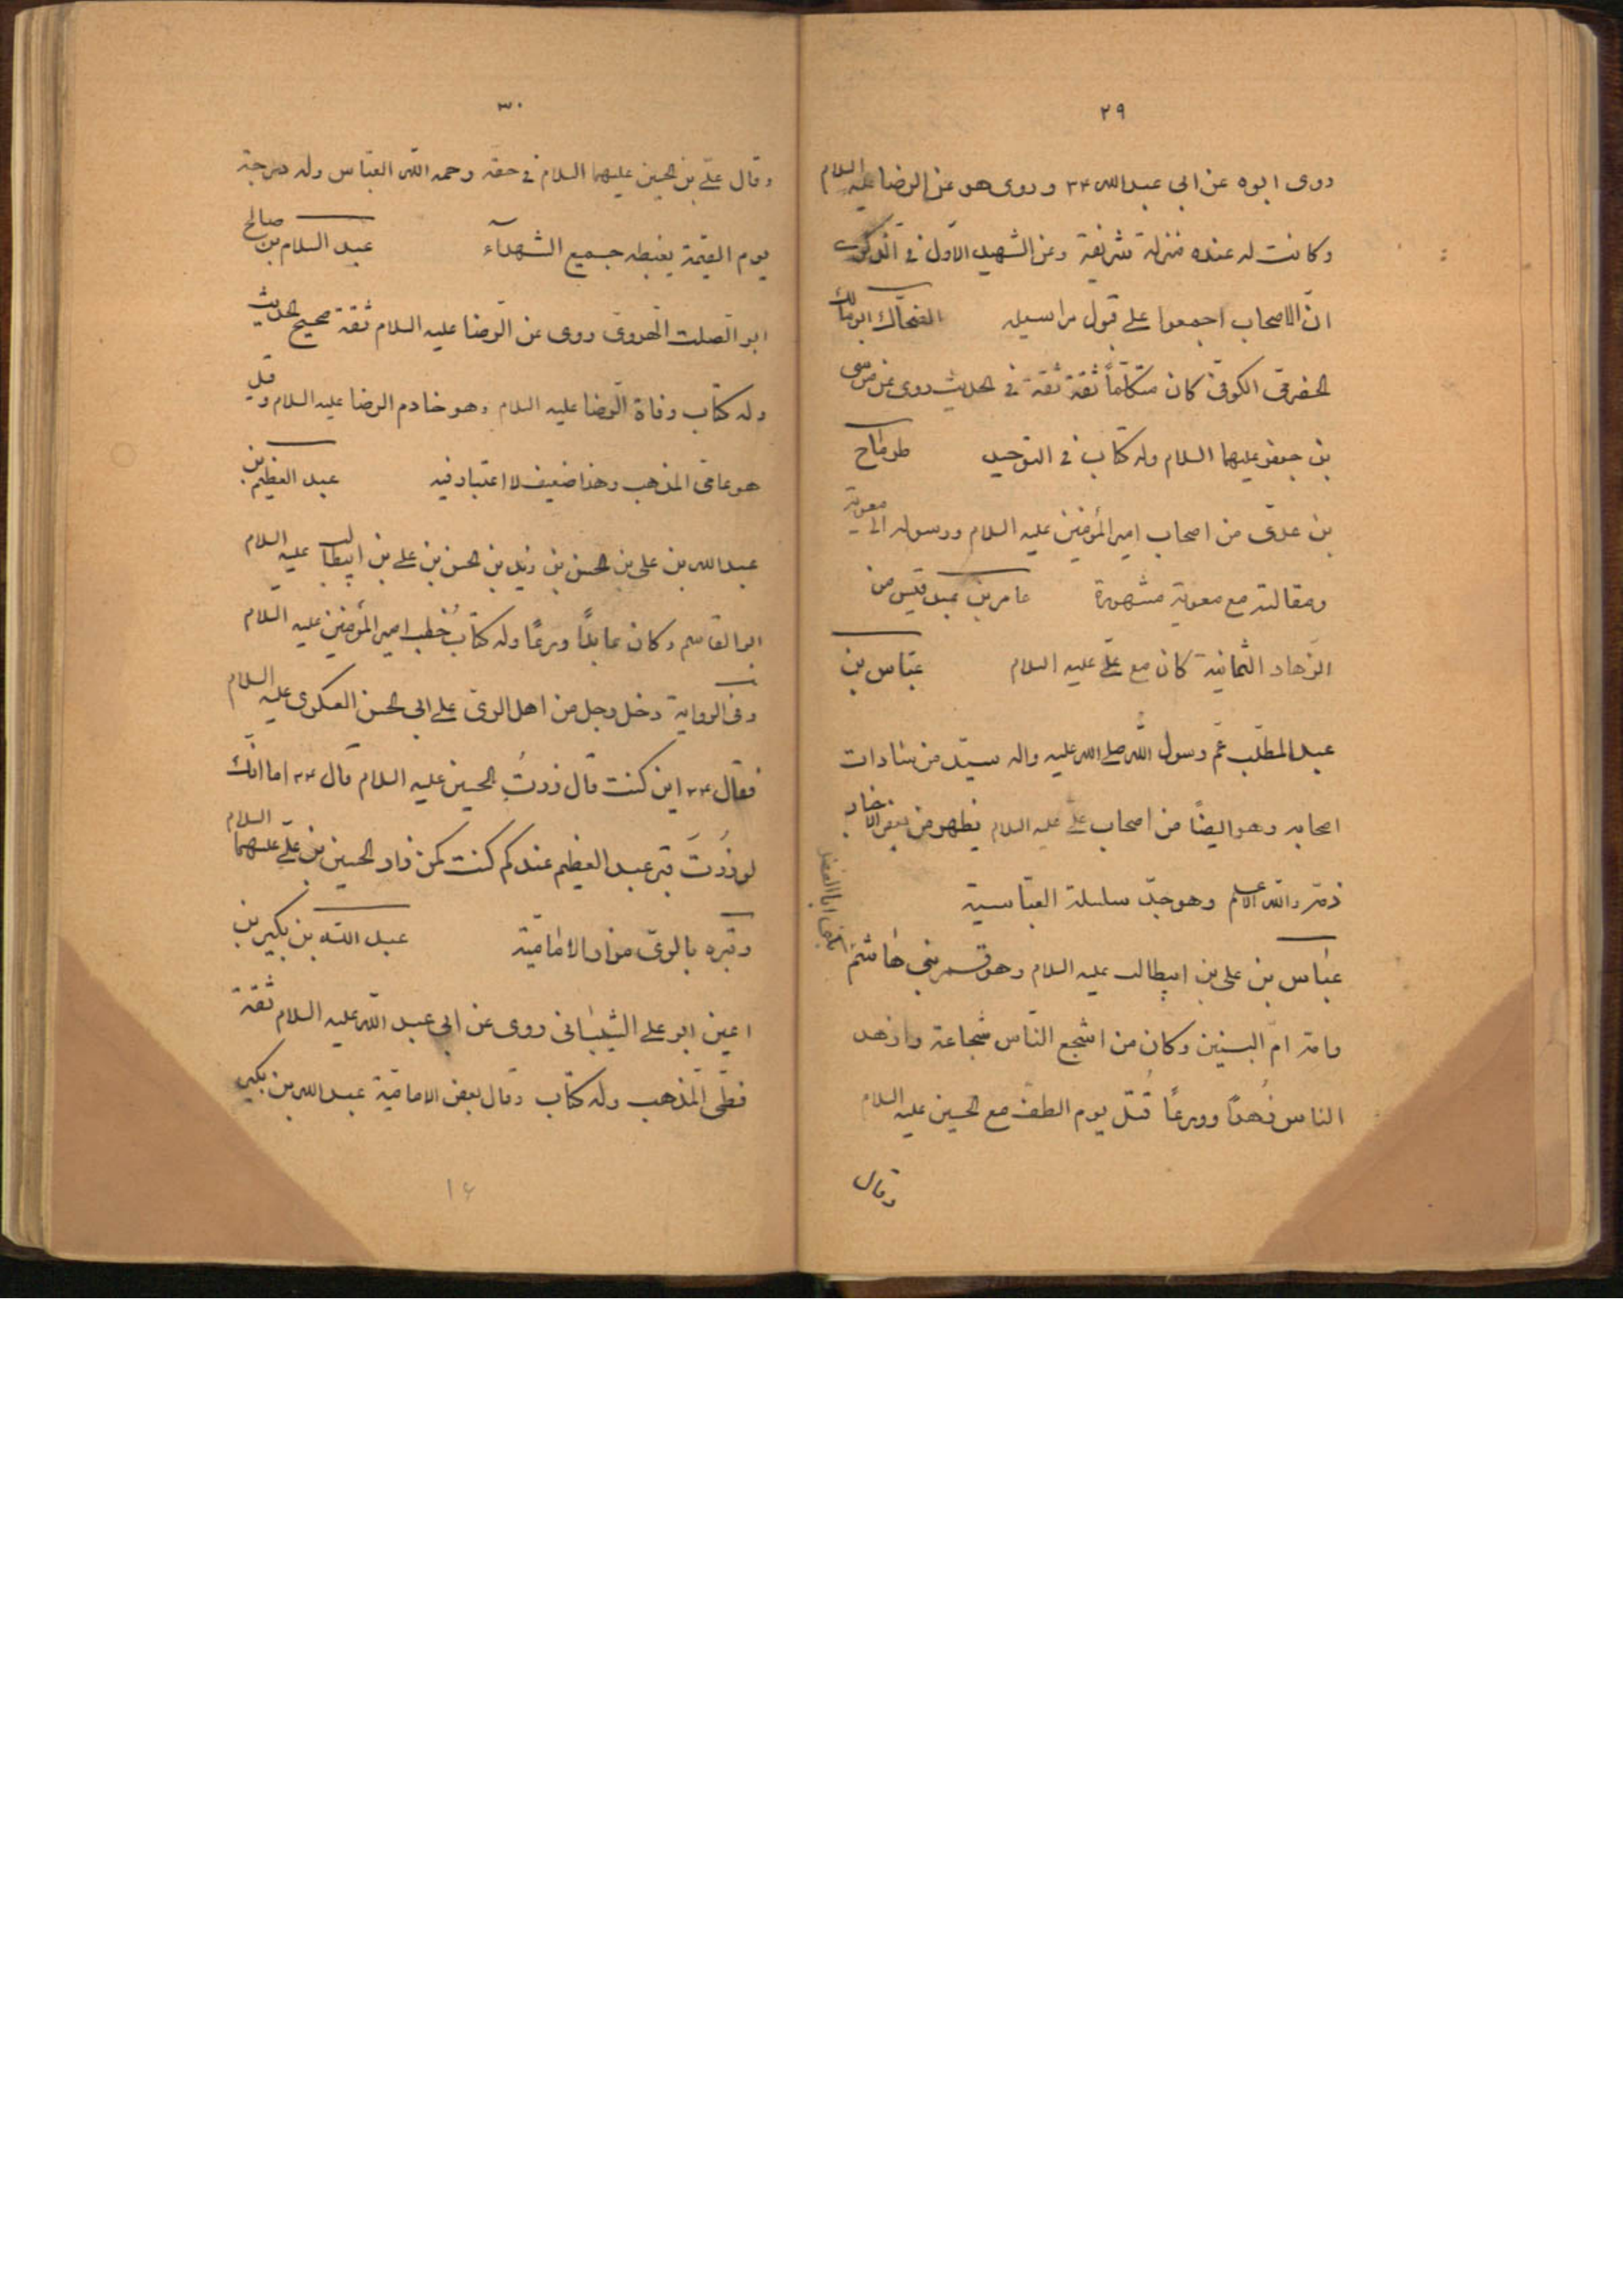 ٢٩
روى ابوه عن ابي عبدالله ع٣ و روى هو عن الرضا عليه السلام
وكانت له عنده منزلة شريفة وعن الشهيد الاوّل في الذكرى
انّ الاصحاب اجمعوا على قبول مراسيله الضحّاك ابو مالك
الحضرمى الكوفى كان متكلّماً ثقة ثقة فى الحديث روى عن موسى
بن جعفر عليهما السلام وله كتاب فى التوحيد طرمّاح
بن عدىّ من اصحاب امير المؤمنين عليه السلام ورسوله الى معوية
ومقالته مع معوية مشهورة عامر بن عبد قيس من
الزهاد الثمانية كان مع علىّ عليه السلام عبّاس بن
عبد المطلّب عمّ رسول الله صلى الله عليه واله سيّد من سادات
اصحابه وهو ايضًا من اصحاب علىّ عليه السلام يظهر من بعض الاخبار
ذمّه والله الاعلم وهو جدّ سلسلة العبّاسية
عبّاس بن على بن ابيطالب عليه السلام وهو قمر بنى هاشم
يكنى ابا الفضل
وامّه امّ البنين وكان من اشجع النّاس شجاعة وازهد
الناس زُهدًا وورعًا قُتل يوم الطفّ مع الحسين عليه السلام
وقال
٣٠
وقال علىّ بن الحسين عليهما السلام فى حقّه رحمه الله العبّاس وله درجة
يوم القيمة يغبطه جميع الشهدآء عبد السلام بن صالح
ابو الصّلت الهروىّ روى عن الرّضا عليه السلام ثقة صحيح الحديث
وله كتاب وفاة الرّضا عليه السلام وهو خادم الرضا عليه السلام وقيل
هو عامى المذهب وهذا ضعيف لا اعتبار فيه عبد العظيم بن
عبدالله بن على بن الحسن بن زيد بن الحسن بن على بن ابيطالب عليه السلام
ابو القاسم وكان عابدًا ورعًا وله كتاب خُطب امير المؤمنين عليه السلام
وفى الرواية دخل رجل من اهل الرىّ على ابى الحسن العسكرى عليه السلام
فقال ع٣ اين كنت قال زرتُ الحسين عليه السلام قال ع٣ اما انّك
لو زُرتَ قبر عبد العظيم عندكم كنت كمن زار الحسين بن علىّ عليهما السلام
وقبره بالرىّ مزار الامامية عبد الله بن بكير بن
اعين ابو على الشيبانى روى عن ابى عبد الله عليه السلام ثقة
فطحىّ المذهب وله كتاب وقال بعض الامامية عبدالله بن بكير
١٤